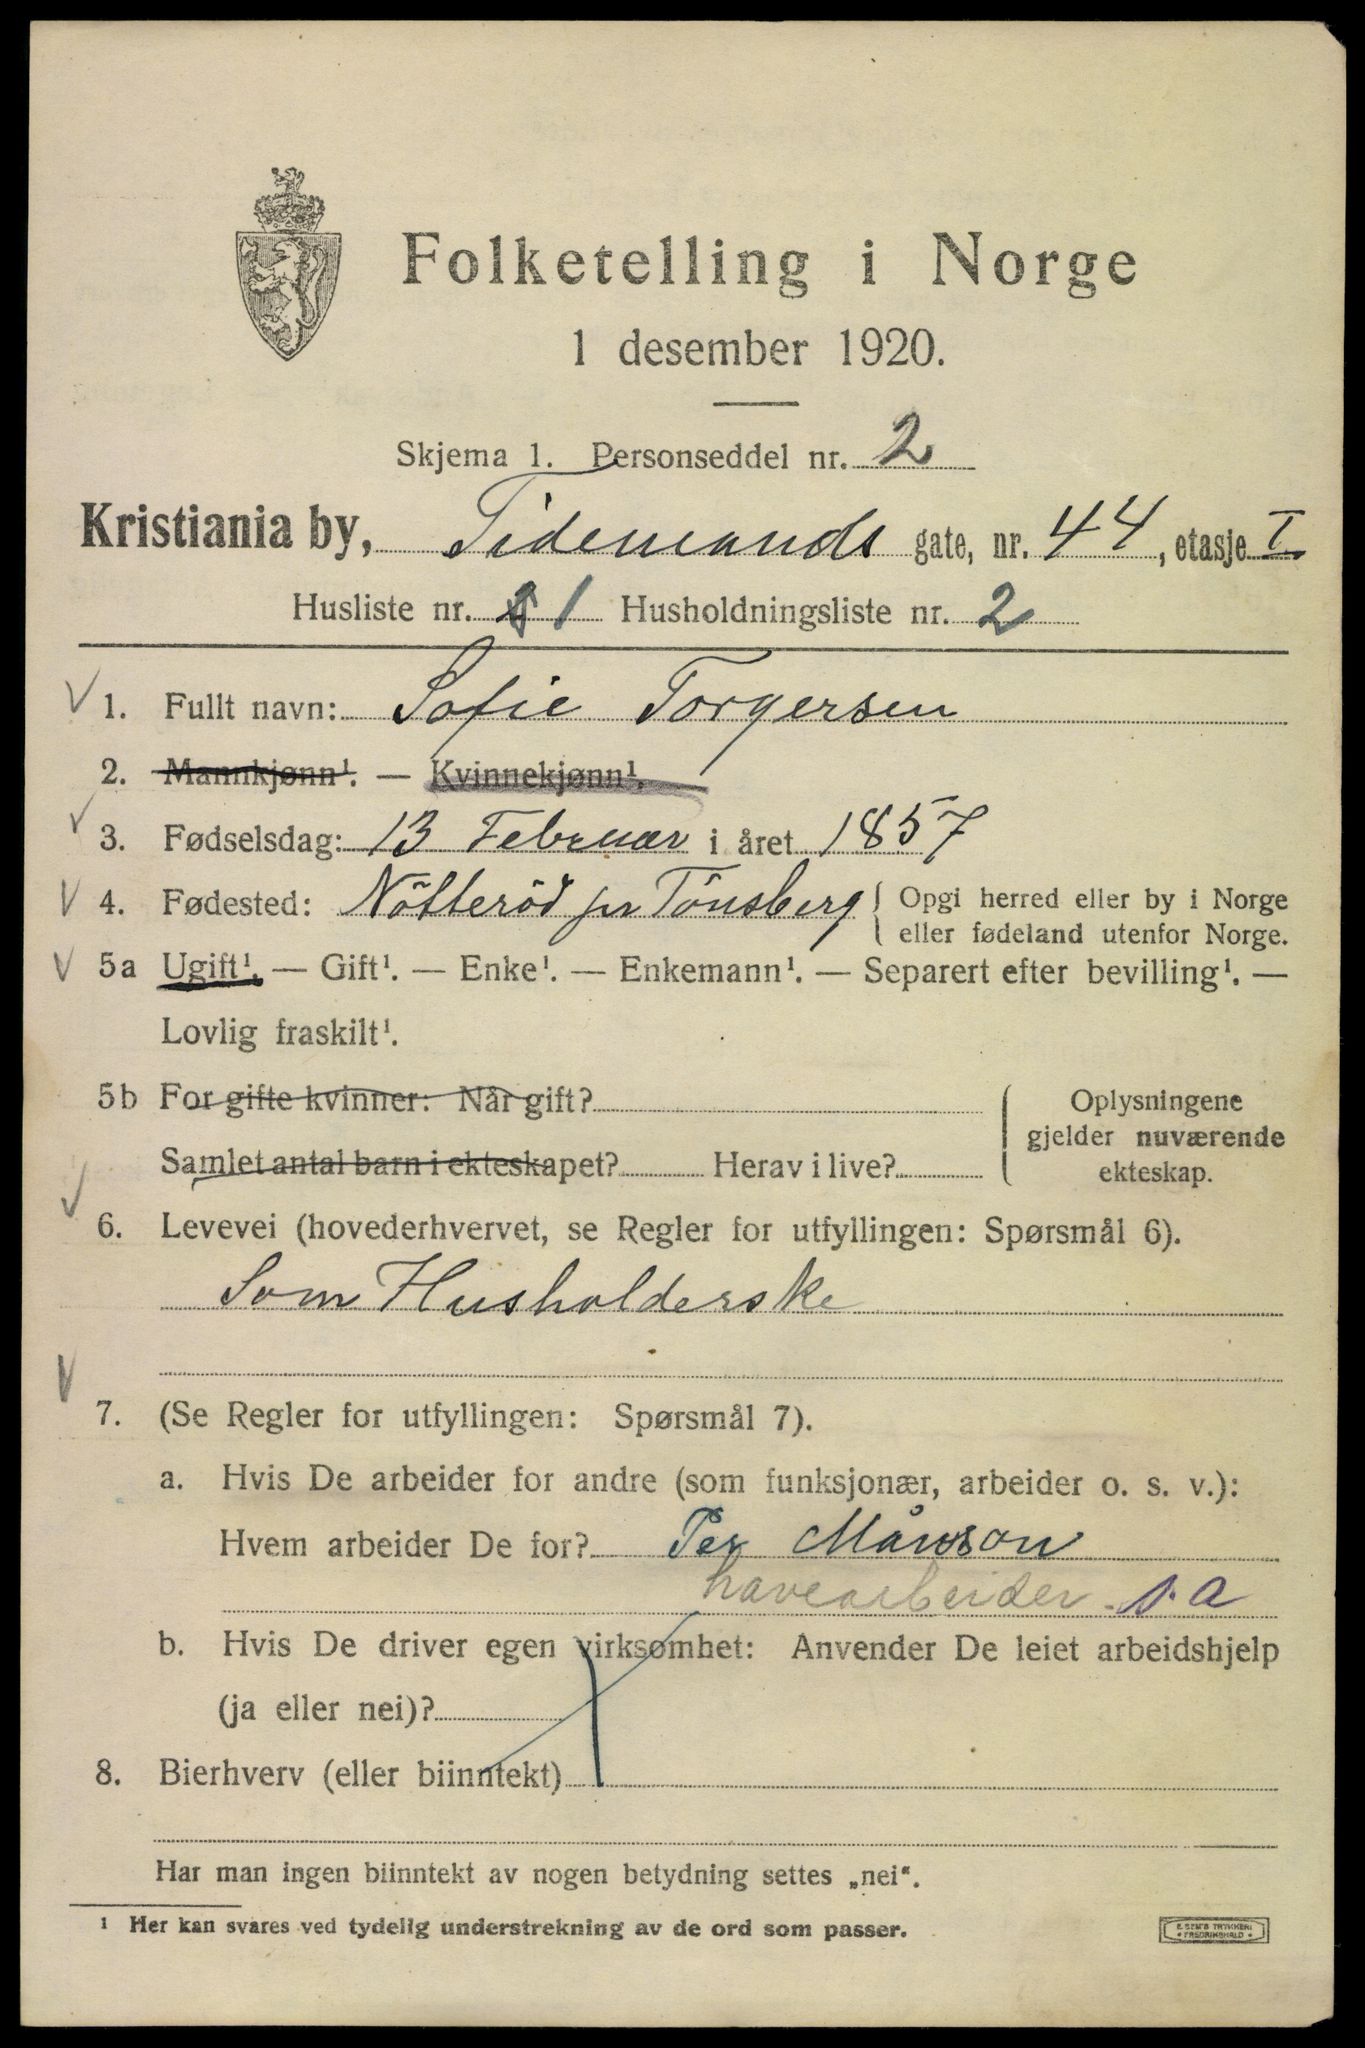 Folketelling i Norge
1 desember 1920.
Skjema 1. Personseddel nr. 2
Kristiania by, Tidemands gate, nr. 44, etasje I.
Husliste nr. 1 Husholdningsliste nr. 2
1. Fullt navn: Sofie Torgersen
2. Mannkjønn¹. — Kvinnekjønn¹.
3. Fødselsdag: 13 Februar i året 1857
4. Fødested: Nötteröd pr Tönsberg { Opgi herred eller by i Norge
eller fødeland utenfor Norge.
5a Ugift¹. — Gift¹. — Enke¹. — Enkemann¹. — Separert efter bevilling¹. —
Lovlig fraskilt¹.
5b For gifte kvinner: Når gift? Oplysningene
gjelder nuværende
Samlet antal barn i ekteskapet? Herav i live? ekteskap.
6. Levevei (hovederhvervet, se Regler for utfyllingen: Spørsmål 6).
Som Husholderske
7. (Se Regler for utfyllingen: Spørsmål 7).
a. Hvis De arbeider for andre (som funksjonær, arbeider o. s. v.):
Hvem arbeider De for? Per Månson
havearbeider. s. a
b. Hvis De driver egen virksomhet: Anvender De leiet arbeidshjelp
(ja eller nei)?
8. Bierhverv (eller biinntekt)
Har man ingen biinntekt av nogen betydning settes „nei“.
¹ Her kan svares ved tydelig understrekning av de ord som passer.
E. SEM'S TRYKKERI
• FREDRIKSHALD •